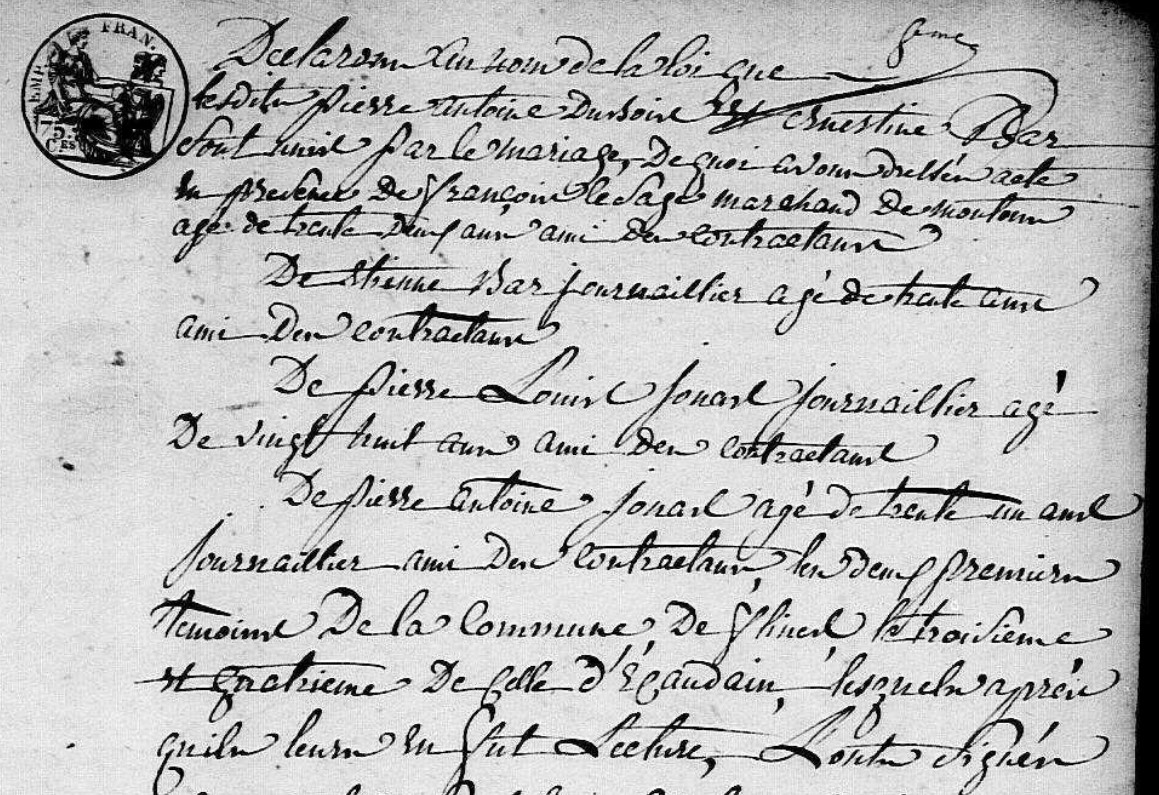 EMP. FRAN.
75
Ces
Declarons au nom de la loi que
lesdits pierre antoine Dussoir et ernestine Bar
sont unis par le mariage, De quoi avons dressés acte
en presence de françois le Sage marchand De moutons
agé de trente Deux ans ami des contractans
De etienne Bar journaillier agé de trente ans
ami Des contractans
De pierre Louis Jouas journaillier agé
De vingt huit ans ami des contractans
De pierre antoine jouas agé de trente un ans
journaillier ami Des contractans, les deux premiers
temoins De la Commune De flines, le troisième
et quatrieme De Celle d'Ecaudain, lesquels après
qu'ils leurs en fut Lecture, L'ont Signés